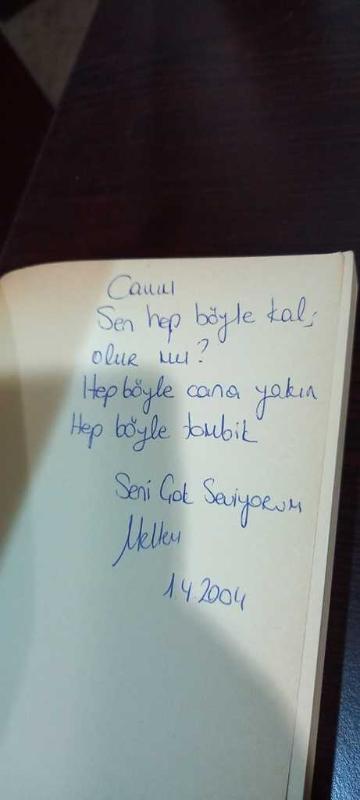 Canım
Sen hep böyle kal;
olur mu?
Hep böyle cana yakın
Hep böyle tombik
Seni Çok Seviyorum
Meltem
1.4.2004